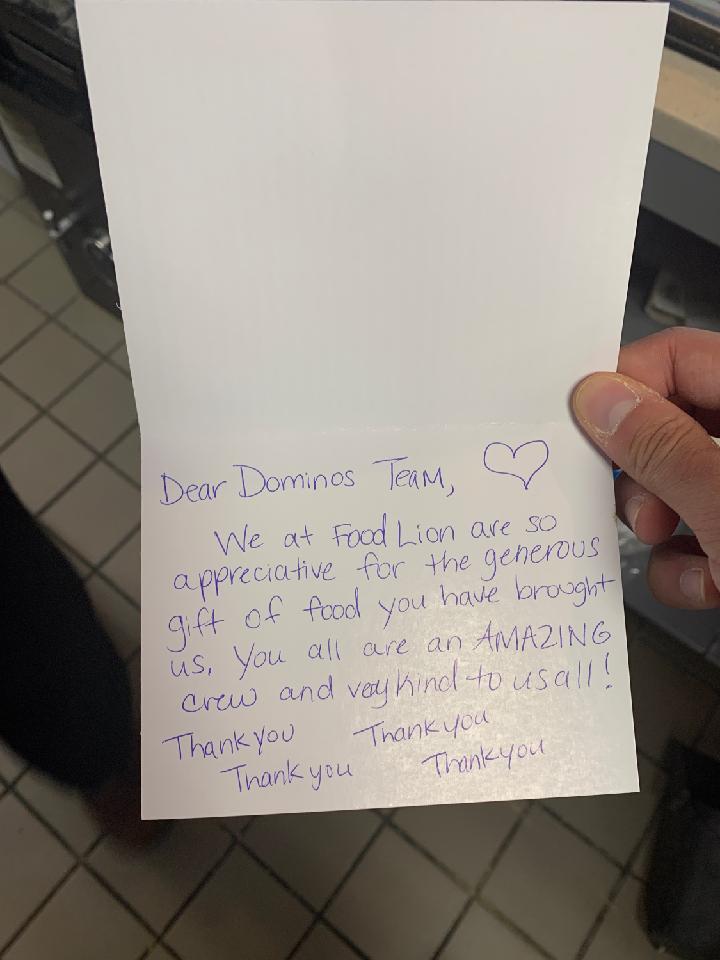 Dear Dominos Team,
We at Food Lion are so
appreciative for the generous
gift of food you have brought
us. You all are an AMAZING
crew and vey kind to us all!
Thank you Thank you
Thank you Thank you